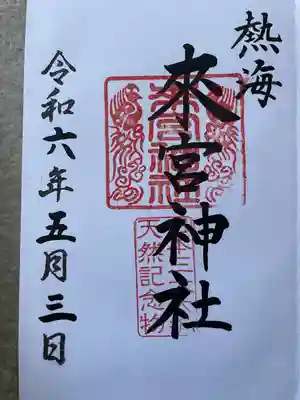 熱海
來宮神社
天然記念物
令和六年五月三日